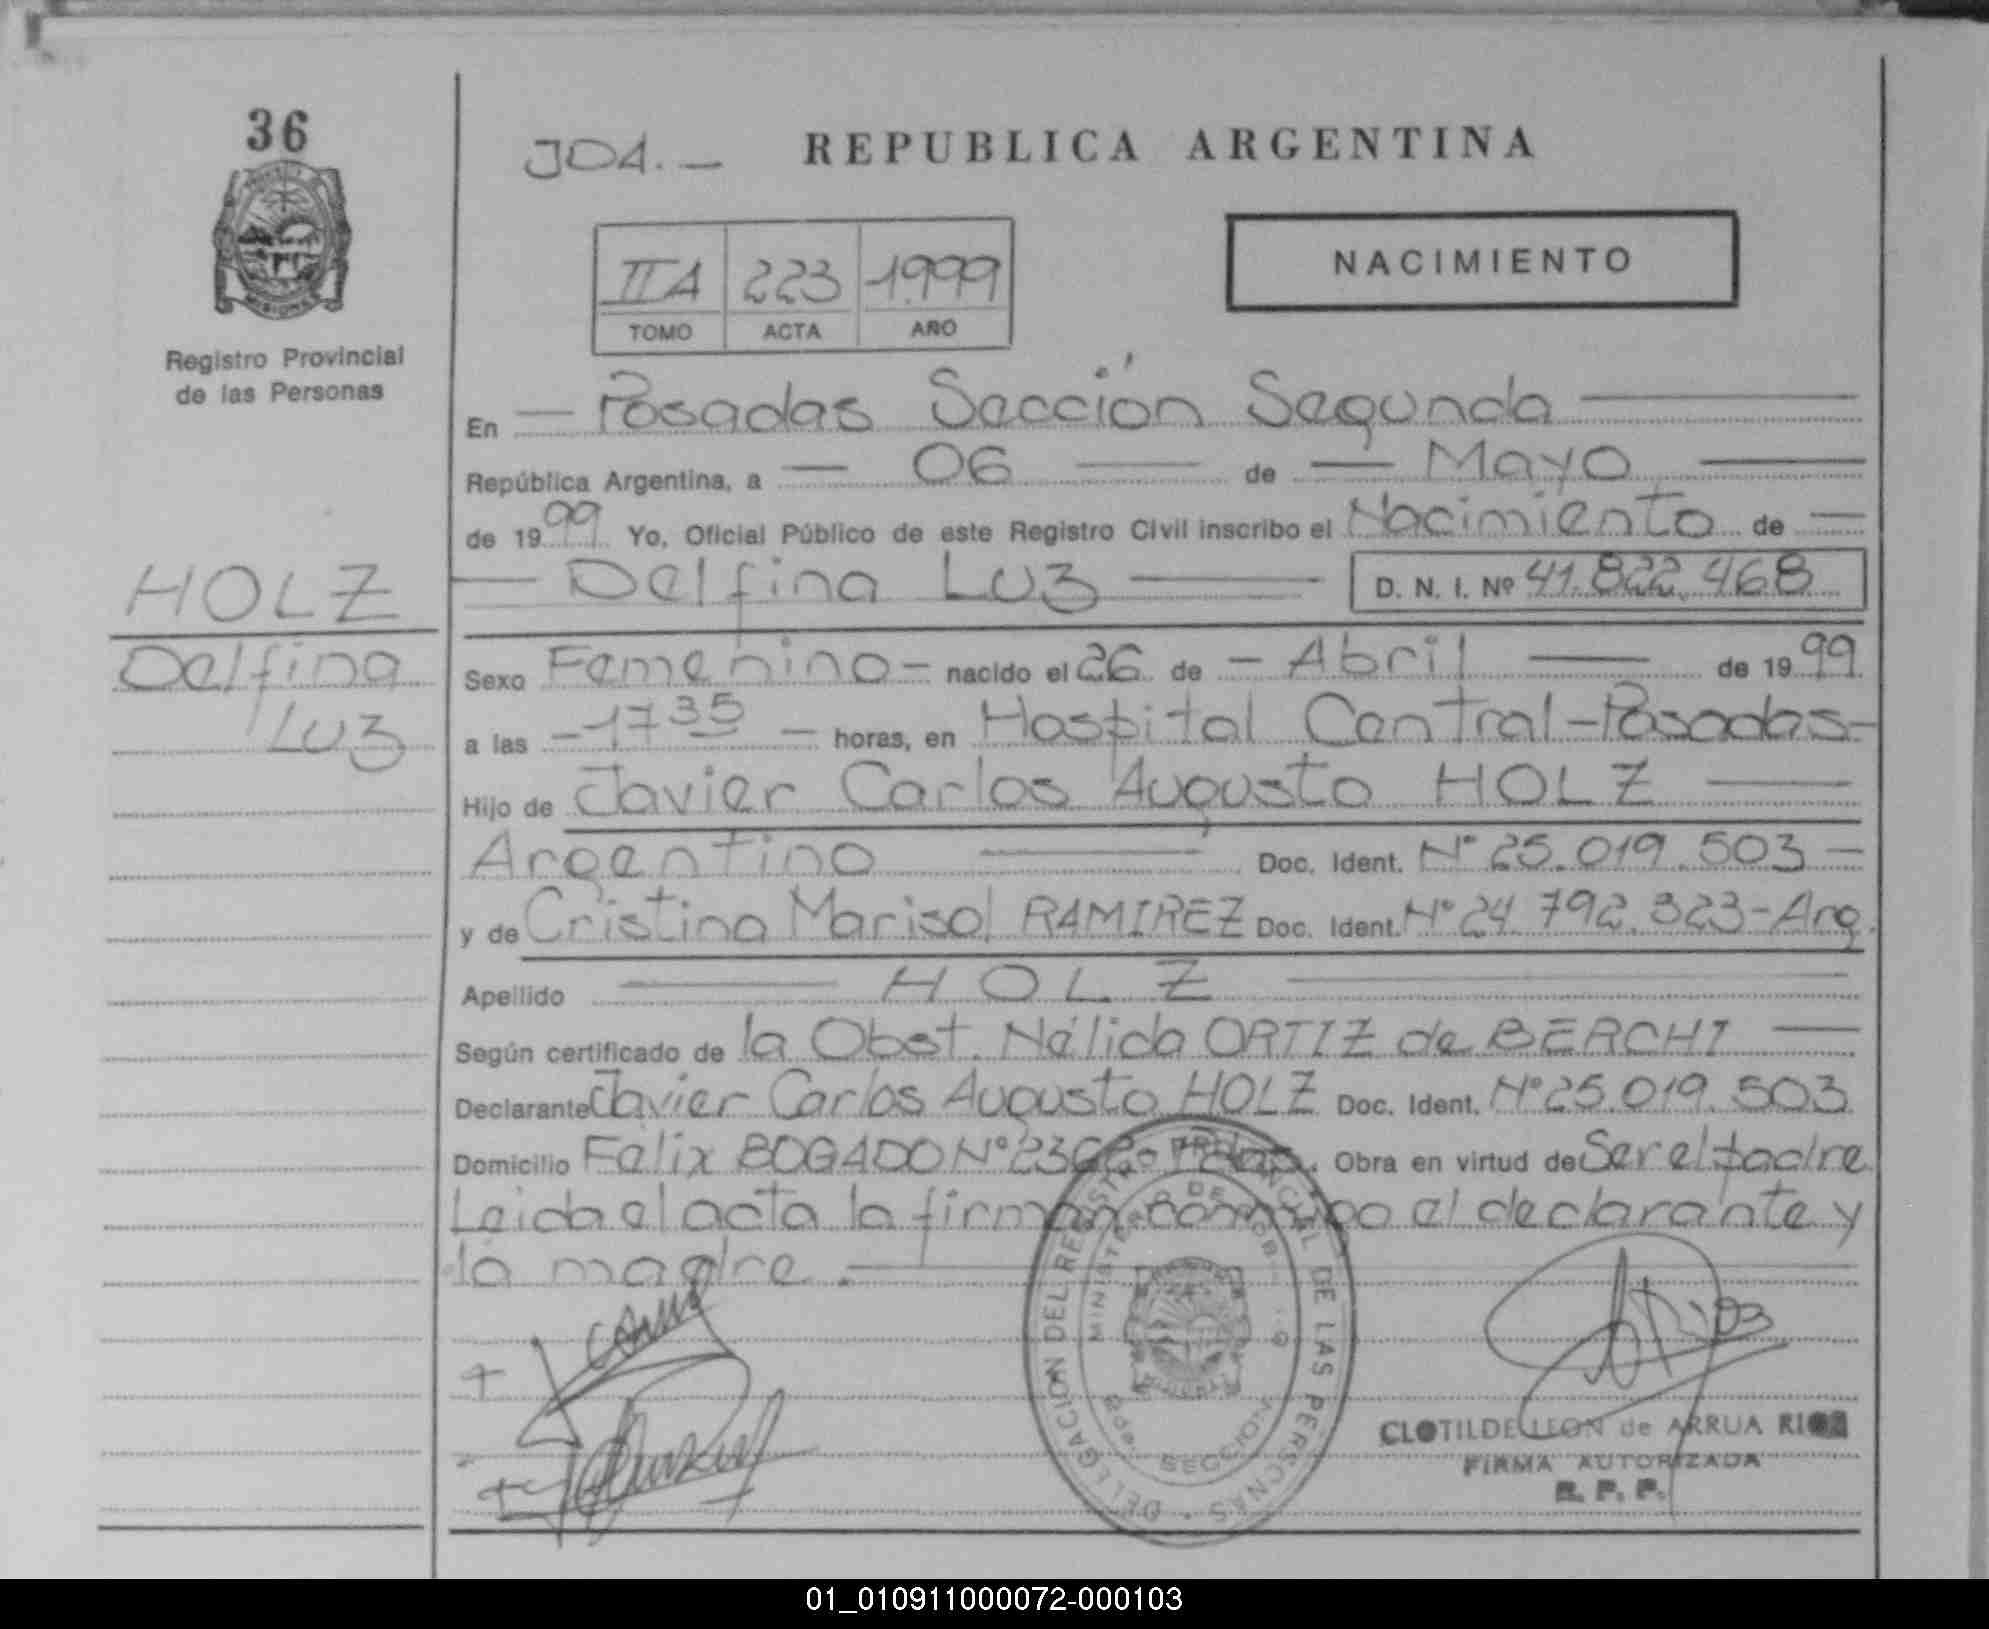 36
Registro Provincial
de las Personas
HOLZ
Delfina
Luz
JOA.—
REPUBLICA ARGENTINA
IIA 223 1999
TOMO ACTA AÑO
NACIMIENTO
En — Posadas Sección Segunda —
República Argentina, a — 06 — de — Mayo —
de 1999 Yo, Oficial Público de este Registro Civil inscribo el Nacimiento de —
— Delfina Luz — D. N. I. Nº 41.822.468
Sexo Femenino — nacido el 26 de — Abril — de 1999
a las — 17 35 — horas, en Hospital Central - Posadas -
Hijo de Javier Carlos Augusto HOLZ —
Argentino — Doc. Ident. Nº 25.019.503 —
y de Cristina Marisol RAMIREZ Doc. Ident. Nº 24.792.323 - Arg.
Apellido — HOLZ —
Según certificado de la Obst. Nélida ORTIZ de BERCHI —
Declarante Javier Carlos Augusto HOLZ Doc. Ident. Nº 25.019.503
Domicilio Félix BOGADO Nº Pdas. Obra en virtud de Ser el padre
Leida el acta la firman conmigo el declarante y
la madre. —
DELEGACION DEL REGISTRO PROVINCIAL DE LAS PERSONAS
MINISTERIO DE GOB
SECCION
CLOTILDE LEON de ARRUA RIOS
FIRMA AUTORIZADA
R. P. P.
01_010911000072-000103